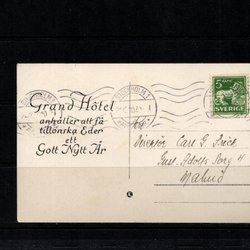 Grand Hôtel
anhåller att få
tillönska Eder
ett
Gott Nytt År
5
SVERIGE
Direktör Carl G. Frick
Gust. Adolfs Torg 4
Malmö